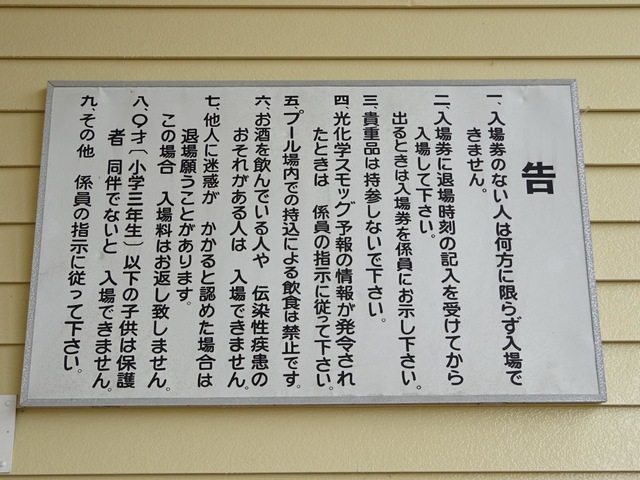 告
一、入場券のない人は何方に限らず入場で
きません。
二、入場券に退場時刻の記入を受けてから
入場して下さい。
出るときは入場券を係員にお示し下さい。
三、貴重品は持参しないで下さい。
四、光化学スモッグ予報の情報が発令され
たときは 係員の指示に従って下さい。
五、プール場内での持込による飲食は禁止です。
六、お酒を飲んでいる人や 伝染性疾患の
おそれがある人は 入場できません。
七、他人に迷惑が かかると認めた場合は
退場願うことがあります。
この場合 入場料はお返し致しません。
八、〇才(小学三年生)以下の子供は保護
者 同伴でないと 入場できません。
九、その他 係員の指示に従って下さい。